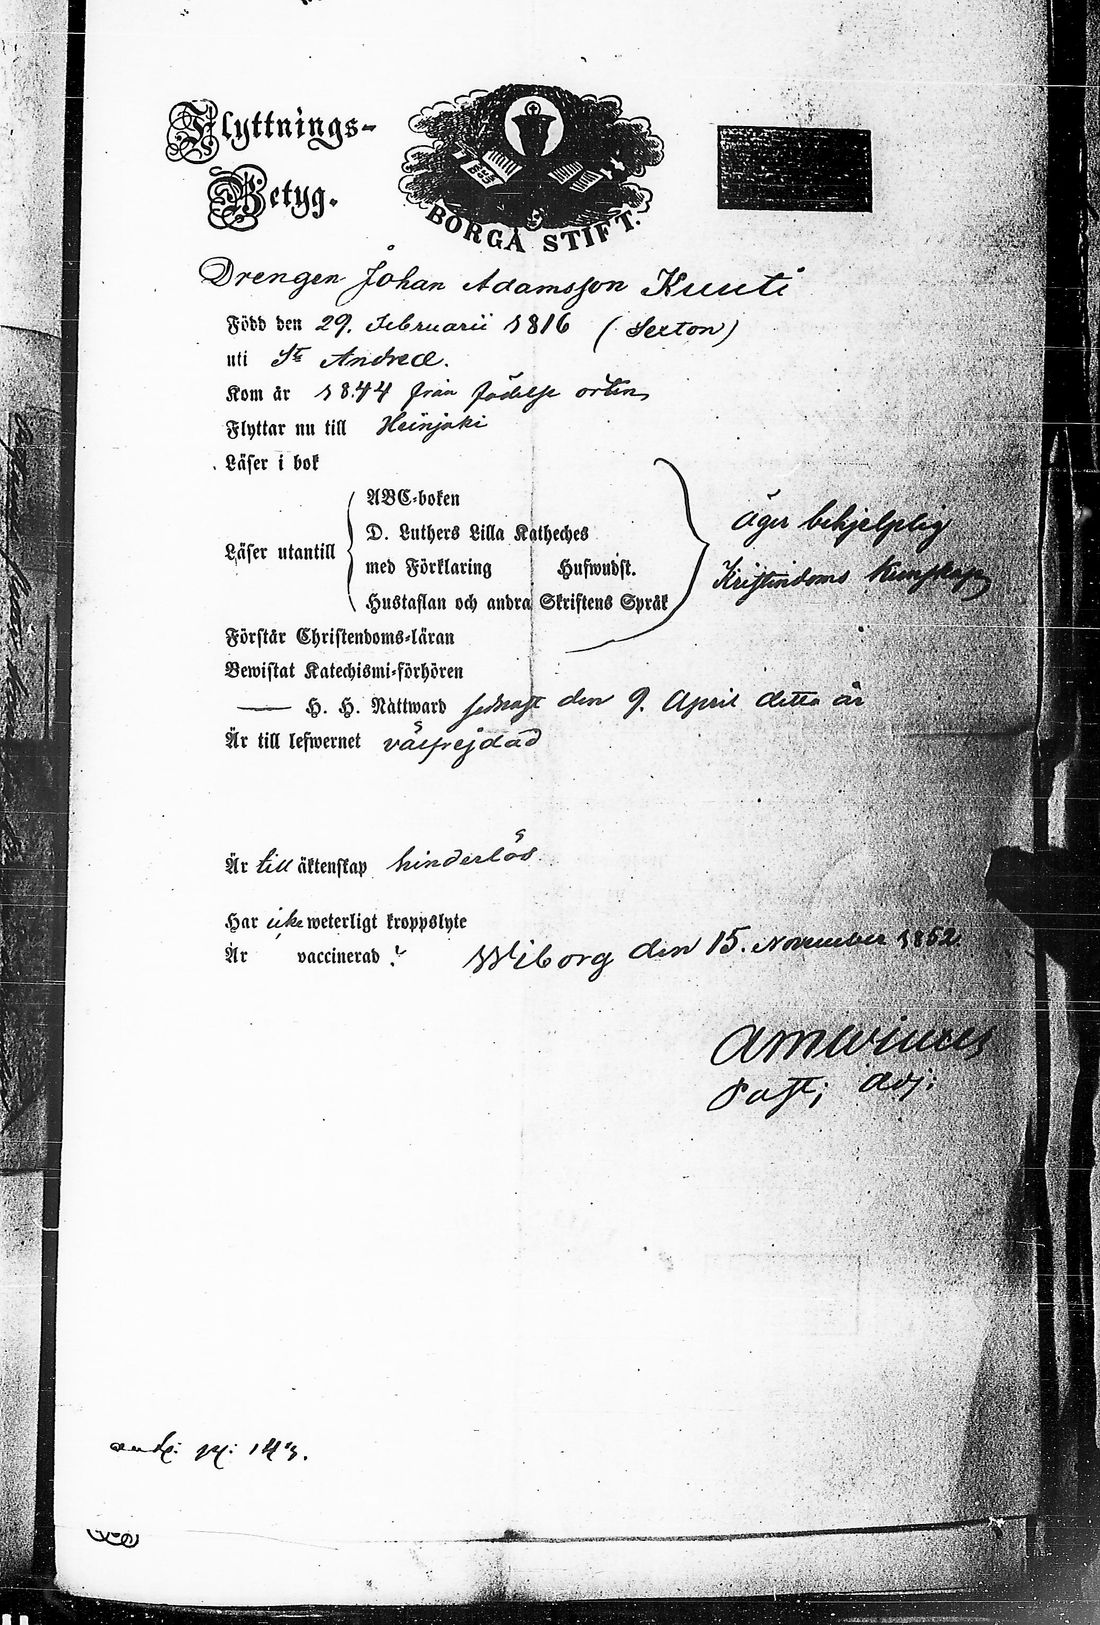 Flyttnings-
Betyg.
BORGÅ STIFT.
Drengen Johan Adamsson Kuuti
Född den 29. Februarii 1816 (Sexton)
uti St Andreæ.
Kom år 1844 från födelse orten
Flyttar nu till Heinjoki
Läser i bok
Läser utantill
ABC-boken
D. Luthers Lilla Katheches
med Förklaring Hufwudst.
Hustaflan och andra Skriftens Språk
äger behjelplig
Kristindoms kunskap
Förstår Christendoms-läran
Bewistat Katechismi-förhören
— H. H. Nattward sednast den 9. April detta år
Är till lefwernet välfrejdad
Är till äktenskap hinderlös
Har icke weterligt kroppslyte
Är vaccinerad
Wiborg den 15. November 1852.
Past; Adj:
143.